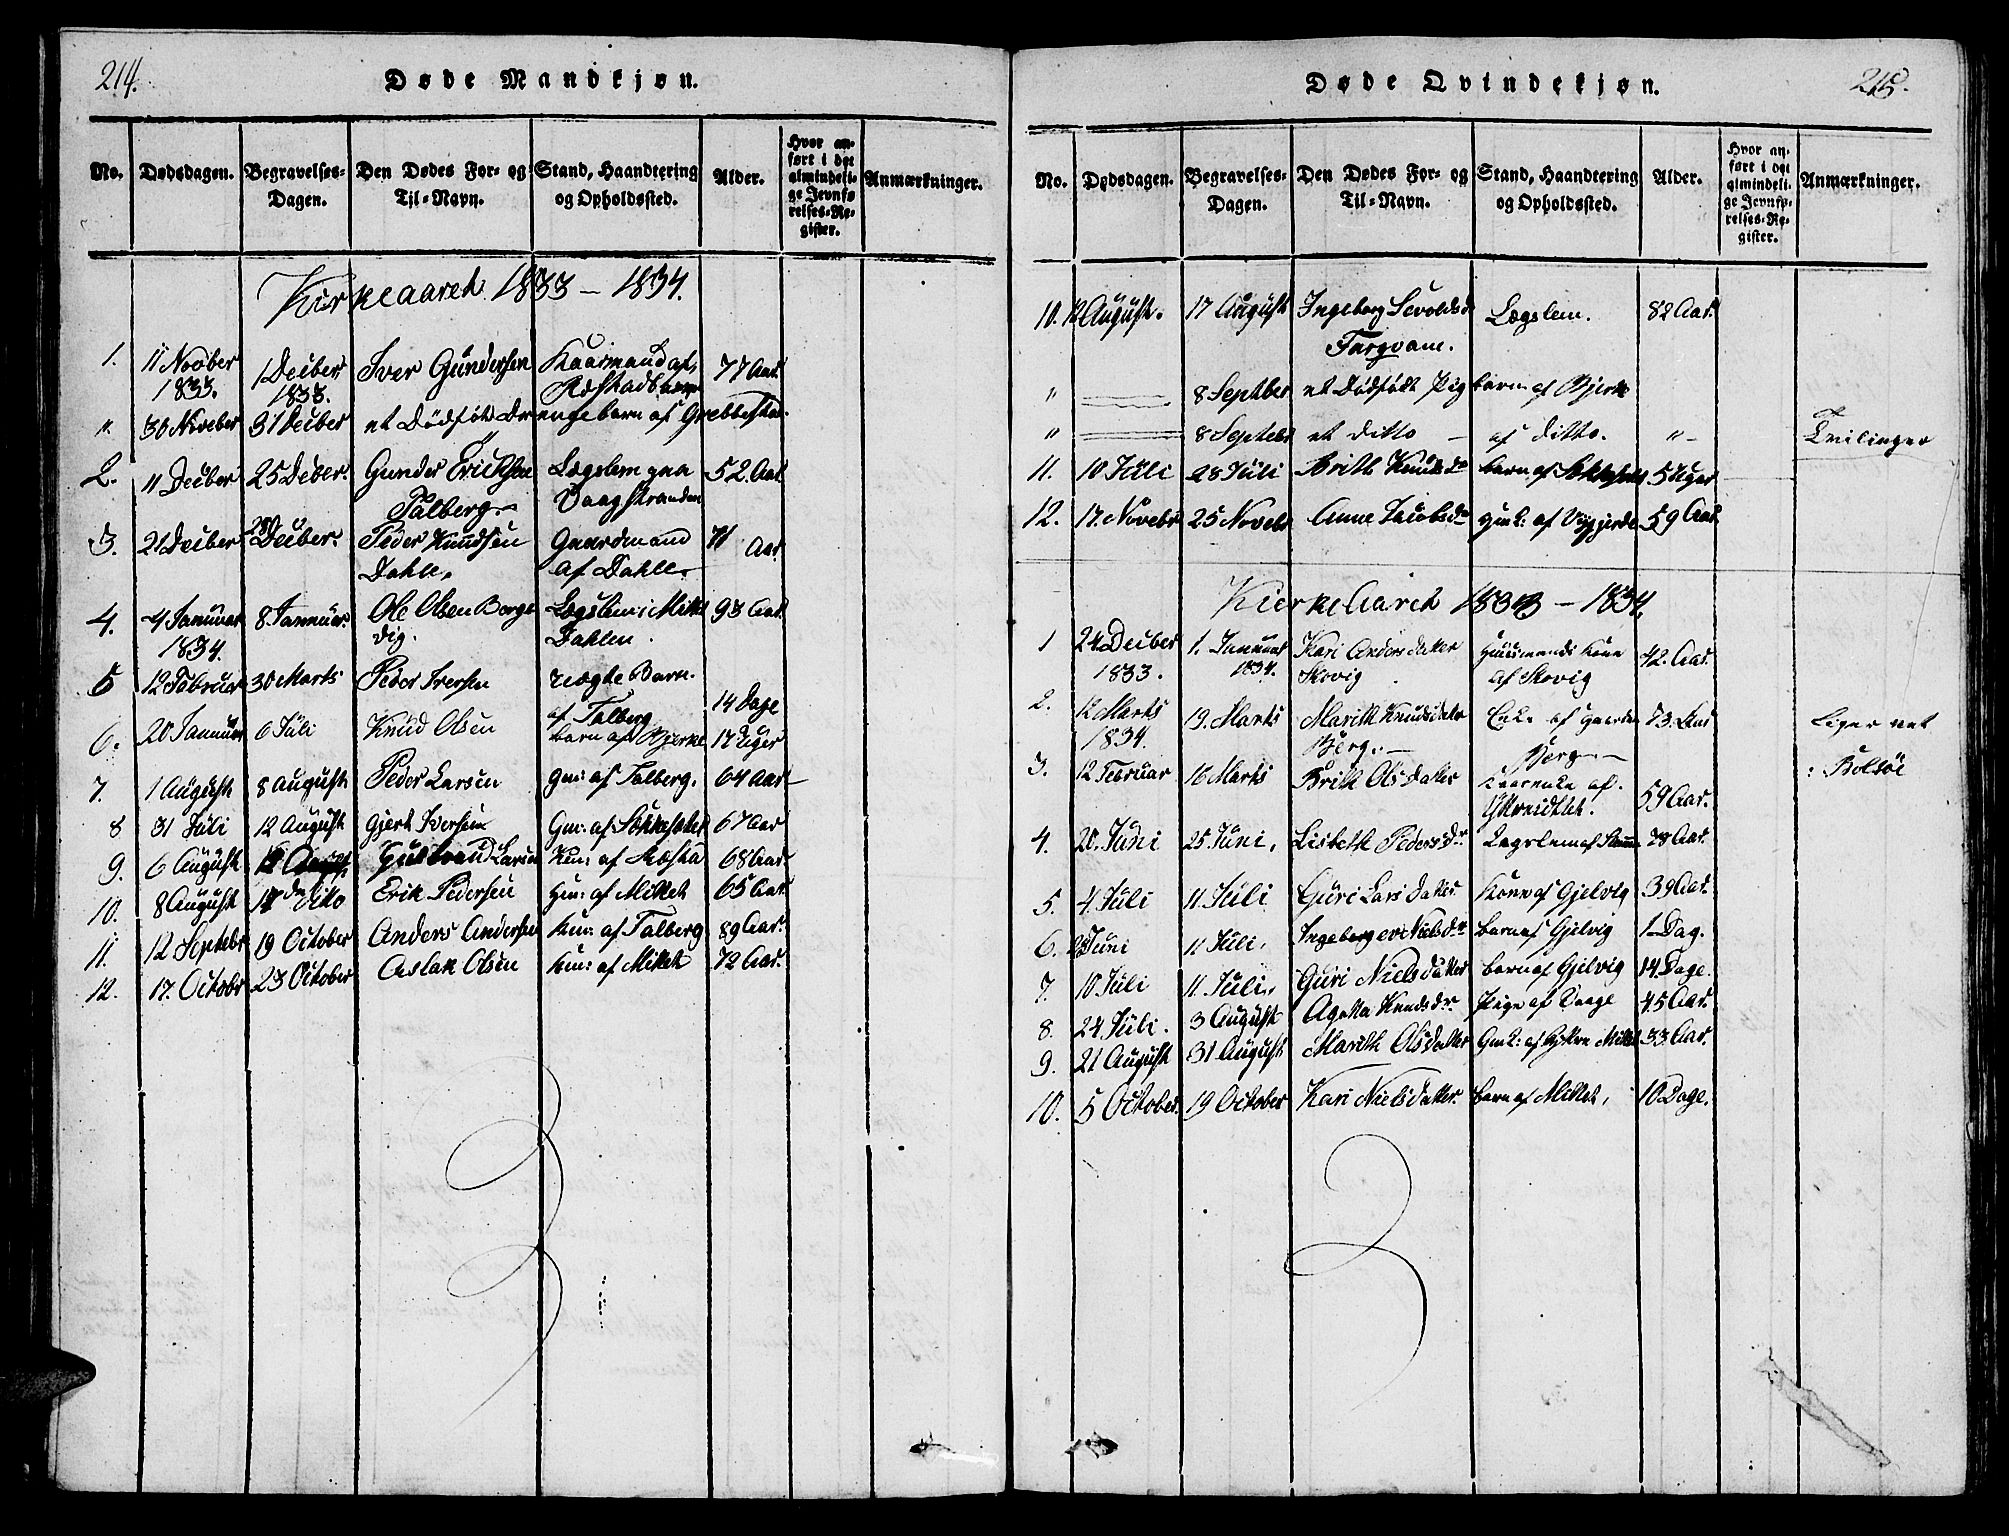 214.
Døde Mandkjøn.
No. Dødsdagen. Begravelses-Dagen. Den Dødes For- og Til-Navn. Stand, Haandtering og Opholdssted. Alder. Hvor anført i det almindelige Jevnførelses-Register. Anmærkninger.
Kirkeaaret 1833 - 1834.
1. 11 Novber 1833. 1 Decber 1833. Iver Gundersen 77 Aar
". 30 Noveber 31 Decber et Dödfödt Drengebarn af
2. 11 Decber 25 Decber. Gunder Erichsen Talberg Lægslem paa Vaagstranden 52. Aar
3. 21 Decber 28 Decber. Peder Knudsen Dahle. Gaardmand af Dahle. 71 Aar
4. 4 Januar 1834. 8. Januar. Ole Olsen Bergs vig. Lægslem i Mittet Dahlen. 93 Aar
5 12 Februar 30 Marts Peder Iversen uægte Barn af Talberg 14 Dage
6. 20 Januar 6 Juli Knud Olsen barn af Bjerke 17 Uger
7. 1 August 8 August Peder Larsen gm: af Talberg. 64 Aar
8 31 Juli 12 August Gjert Iversen Gm: af 67 Aar
9. 6 August Gulbrand Larsen Km: af 68 Aar
10. 8 August 17 Dito Erik Pedersen Hm: af Mittet 65 Aar
11. 12 Septebr 19 October Anders Andersen Km: af Talberg 89 Aar.
12. 17. Octobr 23 October Aslak Olsen Km: af Mittet 72 Aar.
215.
Døde Qvindekjøn.
No. Dødsdagen. Begravelses-Dagen. Den Dødes For- og Til-Navn. Stand, Haandtering og Opholdssted. Alder. Hvor anført i det almindelige Jevnførelses-Register. Anmærkninger.
10. 12 August. 17 August Ingeborg Sevoldsd Torgvam. Lægslem. 82 Aar.
" 8 Septber et Dödfödt Pigebarn af Bjerke
" 8 Septebr et ditto - af ditto. " - Tvilinger
11. 10 Juli 28 Juli Brith Knudsd barn af 5 Uger
12. 17. Novebr 25 Novebr Anne Jacobsd gmk: af 59 Aar
Kierkeaaret 1833 - 1834.
1 24 Decber 1833. 1. Januar 1834. Kari Andersdatter Skovig Huusmands Kone af Skovig 42. Aar.
2. 12 Marts 1834. 19. Marts Marith Knudsdatter Bjerg. - Enke af Gaarden Bjerg - 73. Aar
3. 12 Februar 16 Marts Brith Olsdatter 59 Aar.
: Bolsöe
4. 20. Juni 25 Juni. Lisbeth Pedersdr Lægslem af 78 Aar.
5. 4. Juli 11. Juli Guri Larsdatter Kone af Gjelvig 39 Aar.
6. Juni 11 Juli. Nielsdr barn af Gjelvig 1 Dag.
7. 10 Juli 11. Juli. Guri Nielsdatter barn af Gjelvig 14. Dage.
8. 24. Juli. 3 August Agatha Knudsdr. Pige af Vaage 45 Aar.
9. 21 August 31 August Marith Olsdatter Gmk: af Mittet 33. Aar.
10. 5 October. 19 October Kari Nielsdatter. barn af Mittet. 10 Dage.